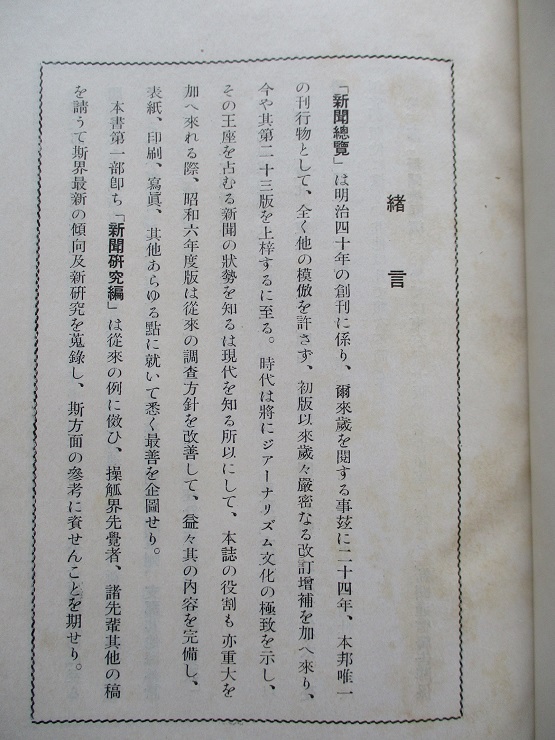 緒言
「新聞總覽」は明治四十年の創刊に係り、爾來歲を閱する事玆に二十四年、本邦唯一
の刊行物として、全く他の模倣を許さず、初版以來歲々嚴密なる改訂增補を加へ來り、
今や其第二十三版を上梓するに至る。時代は將にジアーナリズム文化の極致を示し、
その王座を占むる新聞の狀勢を知るは現代を知る所以にして、本誌の役割も亦重大を
加へ來れる際、昭和六年度版は從來の調查方針を改善して、益々其の內容を完備し、
表紙、印刷、寫眞、其他あらゆる點に就いて悉く最善を企圖せり。
本書第一部卽ち「新聞硏究編」は從來の例に倣ひ、操觚界先覺者、諸先輩其他の稿
を請うて斯界最新の傾向及新硏究を蒐錄し、斯方面の參考に資せんことを期せり。